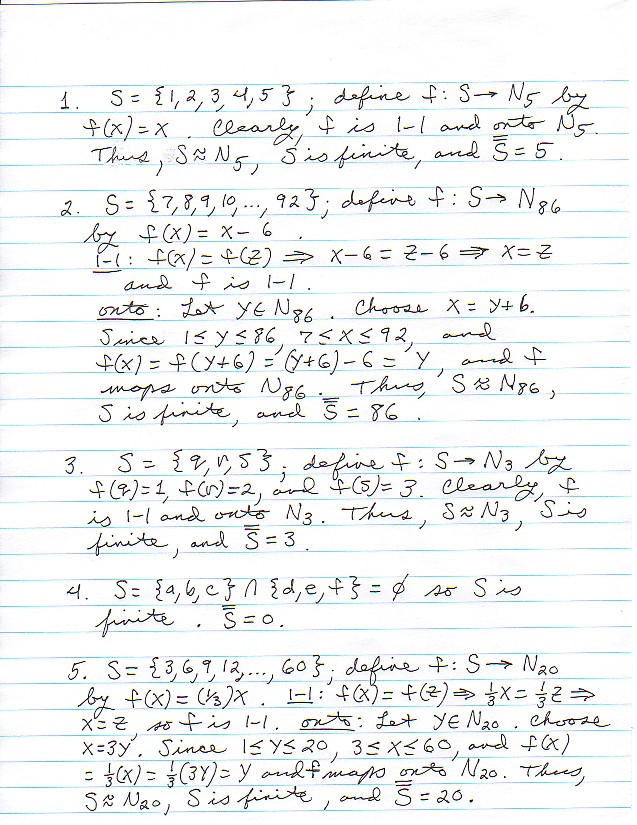 1. S = {1, 2, 3, 4, 5}; define f: S → N₅ by
f(x) = x. Clearly, f is 1-1 and onto N₅.
Thus, S ≈ N₅, S is finite, and S̿ = 5.
2. S = {7, 8, 9, 10, ..., 92}; define f: S → N₈₆
by f(x) = x - 6.
1-1: f(x) = f(z) ⇒ x - 6 = z - 6 ⇒ x = z
and f is 1-1.
onto: Let y ∈ N₈₆. Choose x = y + 6.
Since 1 ≤ y ≤ 86, 7 ≤ x ≤ 92, and
f(x) = f(y+6) = (y+6) - 6 = y, and f
maps onto N₈₆. Thus, S ≈ N₈₆,
S is finite, and S̿ = 86.
3. S = {q, r, s}; define f: S → N₃ by
f(q) = 1, f(r) = 2, and f(s) = 3. Clearly, f
is 1-1 and onto N₃. Thus, S ≈ N₃, S is
finite, and S̿ = 3.
4. S = {a, b, c} ∩ {d, e, f} = ∅ so S is
finite. S̿ = 0.
5. S = {3, 6, 9, 12, ..., 60}; define f: S → N₂₀
by f(x) = (1/3)x. 1-1: f(x) = f(z) ⇒ ⅓x = ⅓z ⇒
x = z, so f is 1-1. onto: Let y ∈ N₂₀. Choose
x = 3y. Since 1 ≤ y ≤ 20, 3 ≤ x ≤ 60, and f(x)
= ⅓(x) = ⅓(3y) = y and f maps onto N₂₀. Thus,
S ≈ N₂₀, S is finite, and S̿ = 20.